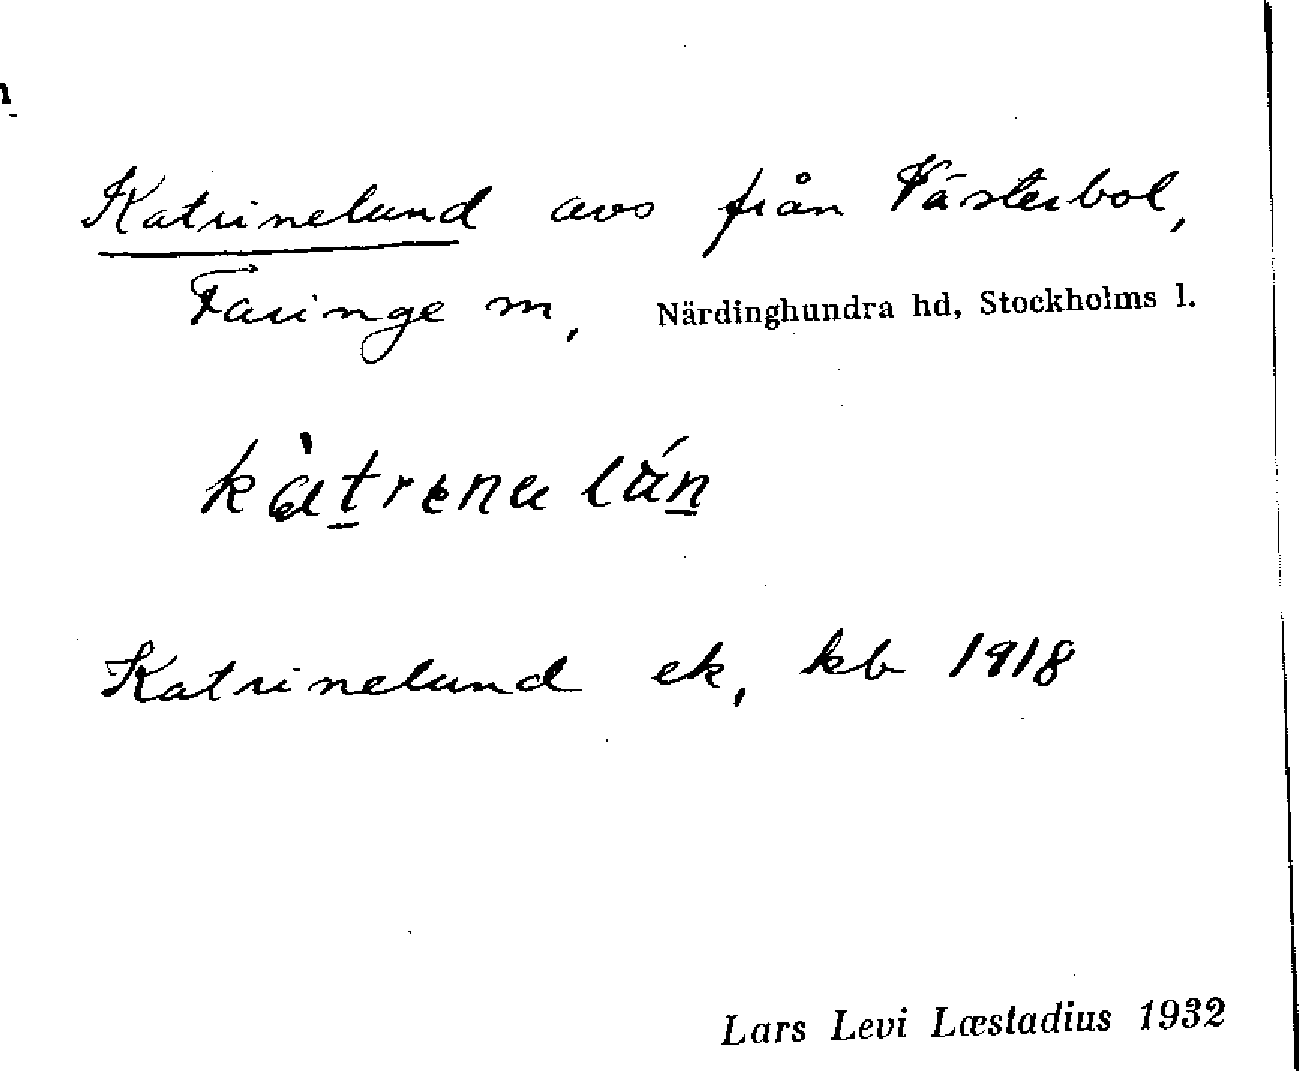 Katrinelund avs från Västerbol,
Faringe m, Närdinghundra hd, Stockholms l.
Katrinelund ek, kb 1918
Lars Levi Læstadius 1932